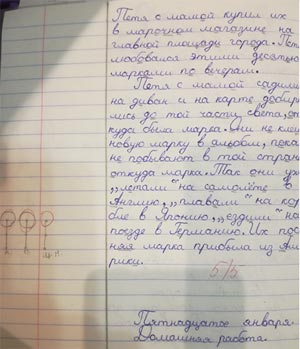 Петя с мамой купил их
в марочном магазине на
главной площади города. Петя
любовался этими десятью
марками по вечерам.
Петя с мамой садили
на диван и на карте добира
лись до той части света, от
куда была марка. Они не кле
новую марку в альбом, пока
не побывают в той стране
откуда марка. Так они уж
„летали" на самолёте в
Англию, „плавали" на кор
бле в Японию, „ездили" на
поезде в Германию. Их пос
няя марка прибыла из Аме
рики.
5/5
Пятнадцатое января.
Домашняя работа.